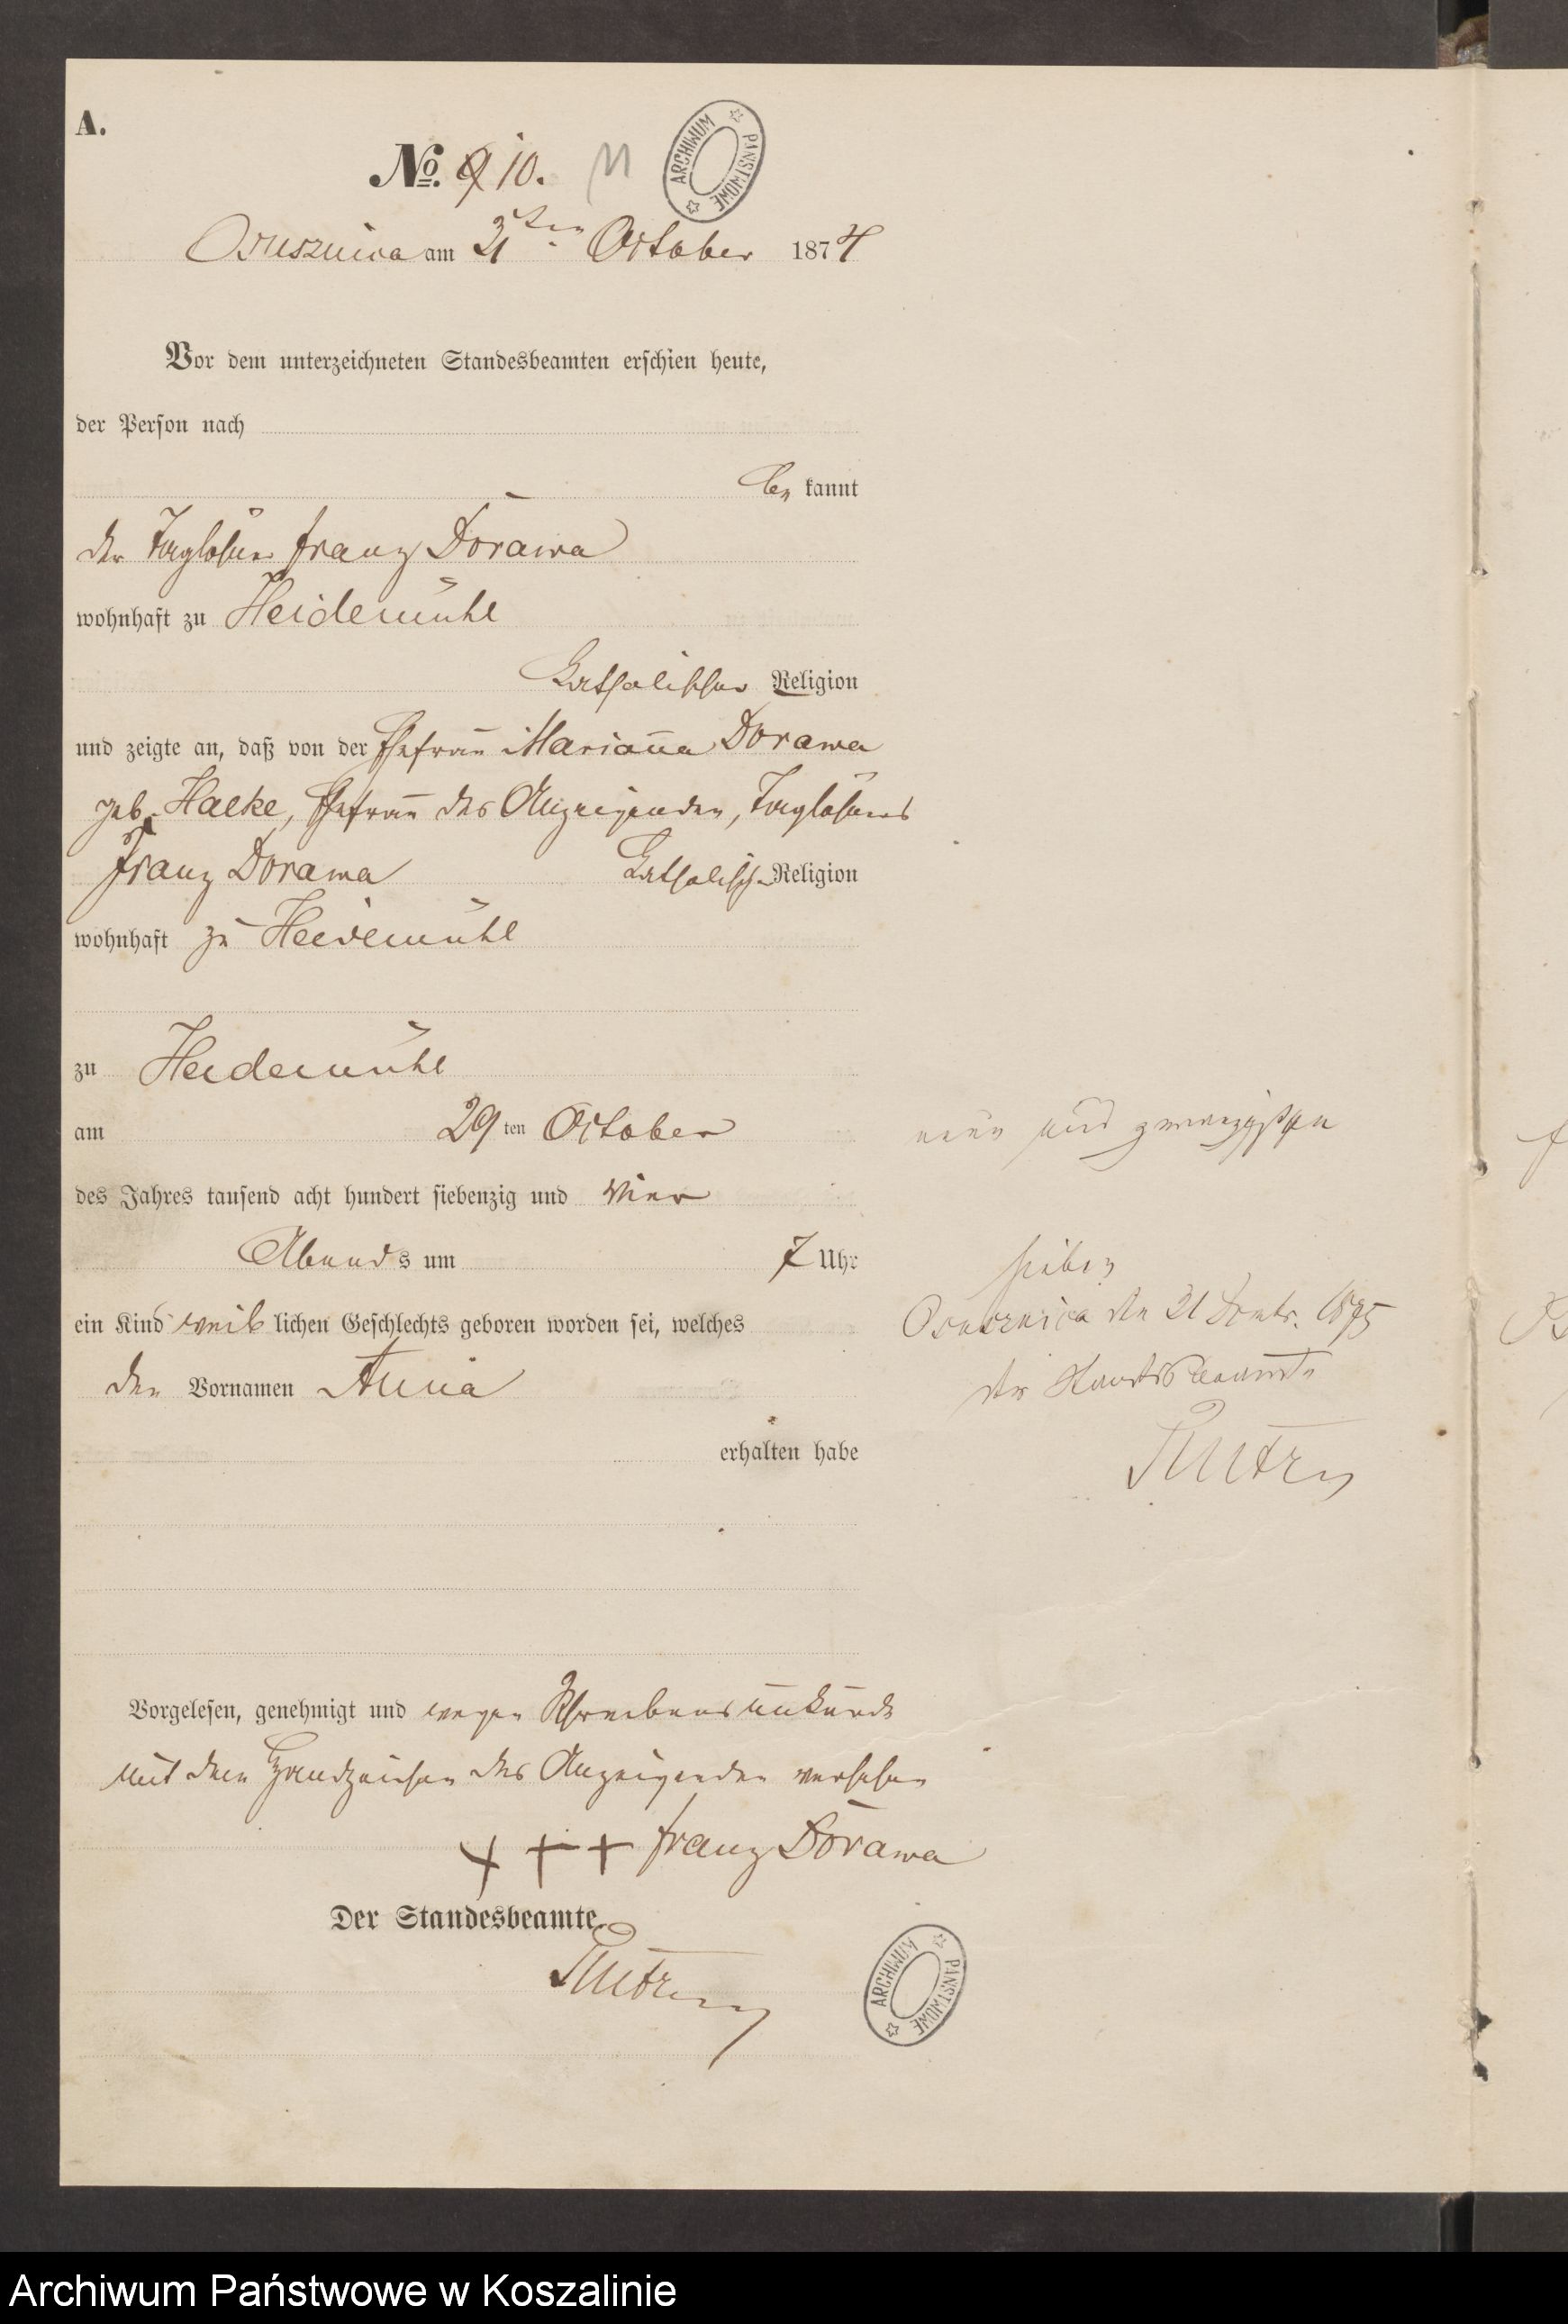 A.
No. 10. 11
ARCHIWUM PAŃSTWOWE
Osusznica am 31ten October 1874
Vor dem unterzeichneten Standesbeamten erschien heute,
der Person nach
be kannt
der Taglöhner Franz Dorawa
wohnhaft zu Heidemühl
Katholischer Religion
und zeigte an, daß von der Ehefrau Marianna Dorawa
geb. Halke, Ehefrau des Anzeigenden, Taglöhners
Franz Dorawa Katholischer Religion
wohnhaft zu Heidemühl
zu Heidemühl
am 29 ten October
neun und zwanzigsten
des Jahres tausend acht hundert siebenzig und vier
Abends um 7 Uhr
sieben
ein Kind weib lichen Geschlechts geboren worden sei, welches
Osusznica den 21 1875
den Vornamen Anna
der Standesbeamte
erhalten habe
Vorgelesen, genehmigt und wegen Schreibensunkunde
mit dem Handzeichen des Anzeigenden versehen
+ + + Franz Dorawa
Der Standesbeamte.
ARCHIWUM PAŃSTWOWE
Archiwum Państwowe w Koszalinie